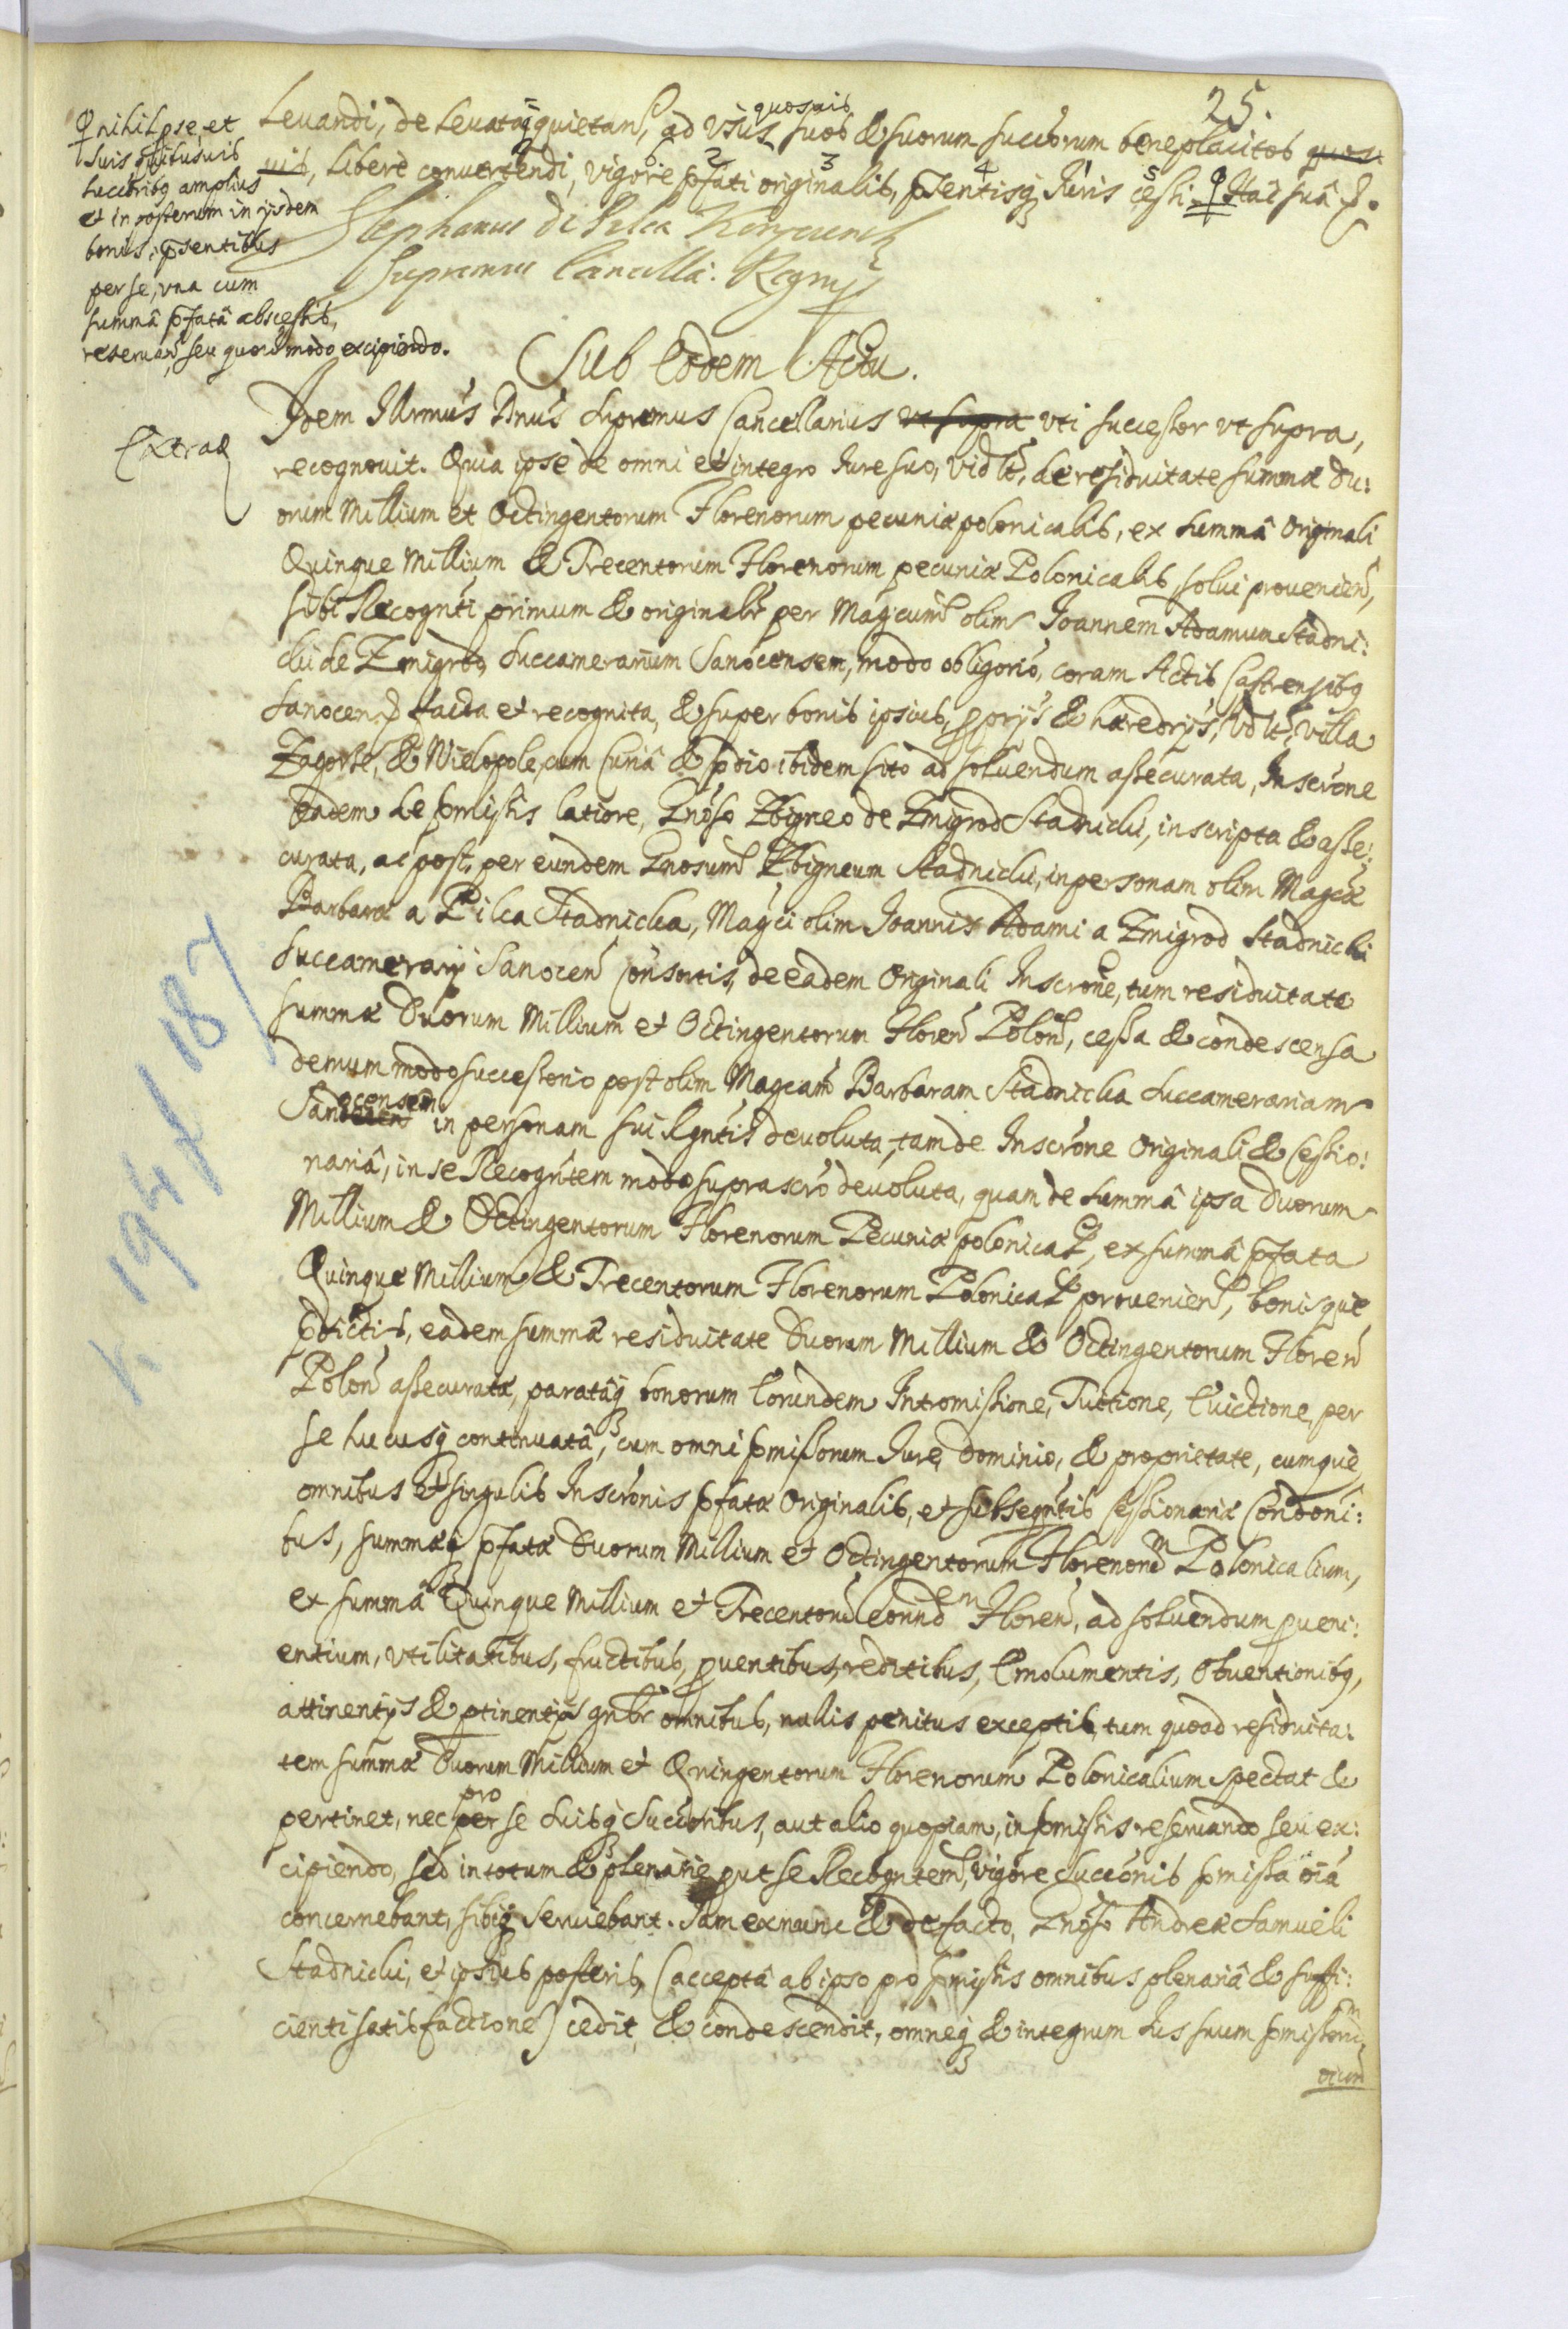 25.
Levandi, de Levatisq quietan, ad Vsus quosuis suos & suorum succorum beneplacitos quos:
uis, libere convertendi, vigore pfati originalis, psentisq Juris cessi. Hac sua
nihil pse, et
suis quibusuis
succribq amplius
et in posterum in ijsdem
bonis, psentibus
per se, vna cum
summâ pfatâ abscessis,
reseruan, seu quouismodo excipiendo.
Stephanus de Pilca Koryciński
Supremus Cancella: Regni
Sub Eodem Actu.
Extrad
Idem Illrmus Dnus Supremus Cancellarius vt supra vti successor vt supra,
recognouit. Quia ipse de omni et integro Jure suo, vidlt, de residuitate summæ du:
orum Millium et Octingentorum Florenorum pecuniæ polonicalis, ex summâ Originali
Quinque Millium & Trecentorum Florenorum pecuniæ Polonicalis, solui prouenien,
sibi Recognti primum & originalr per Magcum olim Joannem Adamum Stadni:
cki de Zmigrod, Succamerarium Sanocensem, modo obligorio, coram Actis Castrensibq
Sanocen facta et recognita, & super bonis ipsius, proprijs & hæredrijs, Vdlt, villa
Zagorze, & Wielopole, cum Curiâ & pdio ibidem sito ad soluendum assecurata, Inscrone
eadem de pmissis latiore, Gnoso Zbigneo de Zmigrod Stadnicki, inscripta & asse:
curata, ac post, per eundem Gnosum Zbigneum Stadnicki, in personam olim Magcæ
Barbaræ a Pilca Stadnicka, Magci olim Joannis Adami a Zmigrod Stadnicki
Succamerarij Sanocen Consortis, de eadem Originali Inscrone, tum residuitate
summæ Duorum Millium et Octingentorum Floren Polon, cessa & condescensa
demum modo successorio post olim Magcam Barbaram Stadnicka Succamerariam
Sanocensem in personam sui Rgntis deuoluta, tam de Inscrone Originali & Cessio:
nariâ, in se Recogntem modo suprascro deuoluta, quam de summâ ipsa Duorum
Millium & Octingentorum Florenorum Pecuniæ polonical, ex summâ pfata
Quinque Millium & Trecentorum Florenorum Polonical prouenien, bonisque
pdictis, eadem summæ residuitate Duorum Millium & Octingentorum Floren
Polon assecurata, parataq bonorum Eorundem Intromissione, Tuitione, Euictione, per
se hucusq continuatâ, cum omni pmissorum Jure, dominio, & proprietate, cumque
omnibus & singulis Inscronis pfatæ Originalis, et subsequtis Cessionariæ Condoni:
bus, summæq pfatæ Duorum Millium et Octingentorum Florenorum Polonicalium,
ex summâ Quinque Millium et Trecentoru Eorundem Floren, ad soluendum pueni:
entium, vtilitatibus, fructibus, puentibus, reditibus, Emolumentis, Obuentionibq,
attinentijs & ptinentijs gnlr omnibus, nullis penitus exceptis, tum quoad residuita:
tem summæ Duorum Millium et Quingentorum Florenorum Polonicalium spectat &
pertinet, nec per pro se suisq Succoribus, aut alio quopiam, in pmissis reseruando seu ex:
cipiendo, sed in totum & plenarie, put se Recogntem, vigore Succonis pmissa oia
concernebant, sibiq seruiebant. Jam ex nunc & de facto, Gnoso Andreæ Samueli
Stadnicki, et ipsius posteris, (acceptâ ab ipso pro pmissis omnibus plenariâ & suffi:
cienti satisfactione) cedit, & condescendit, omneq & integrum Jus suum pmissorum
oium